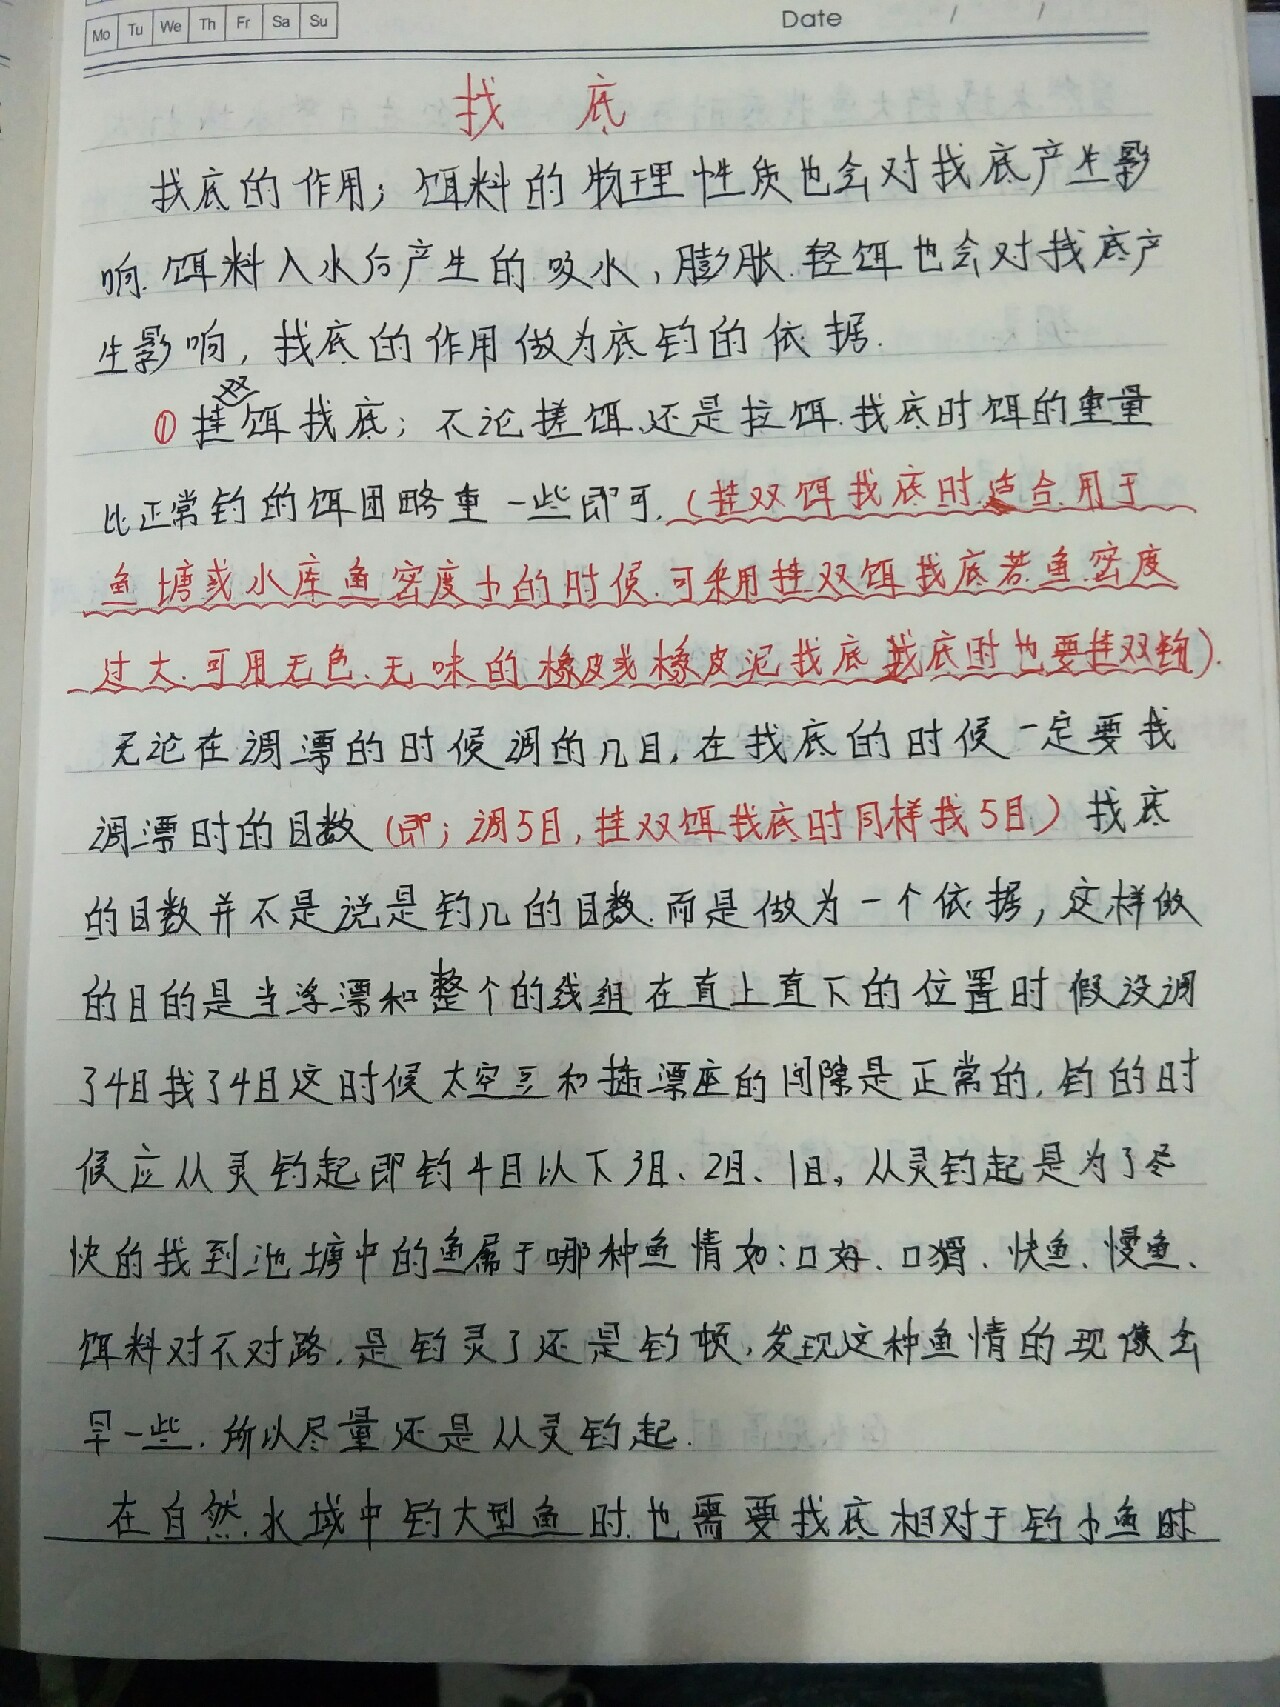 Mo Tu We Th Fr Sa Su
Date / /
找 底
找底的作用；饵料的物理性质也会对找底产生影
响.饵料入水后产生的吸水,膨胀.轻饵也会对找底产
生影响,找底的作用做为底钓的依据.
双
①挂饵找底；不论搓饵、还是拉饵.找底时饵的重量
比正常钓的饵团略重一些即可.(挂双饵找底时适合用于
鱼塘或水库鱼密度小的时候.可采用挂双饵找底若鱼密度
过大.可用无色、无味的橡皮或橡皮泥找底找底时也要挂双钩).
无论在调漂的时候调的几目,在找底的时候一定要找
调漂时的目数(即；调5目,挂双饵找底时同样找5目)找底
的目数并不是说是钓几的目数.而是做为一个依据,这样做
的目的是当浮漂和整个的线组在直上直下的位置时假设调
了4目找了4目这时候太空豆和插漂座的间隙是正常的,钓的时
候应从灵钓起即钓4目以下3目、2目、1目,从灵钓起是为了尽
快的找到池塘中的鱼属于哪种鱼情如:口好、口猾、快鱼、慢鱼、
饵料对不对路.是钓灵了还是钓顿,发现这种鱼情的现像会
早一些.所以尽量还是从灵钓起.
在自然水域中钓大型鱼时.也需要找底相对于钓小鱼时